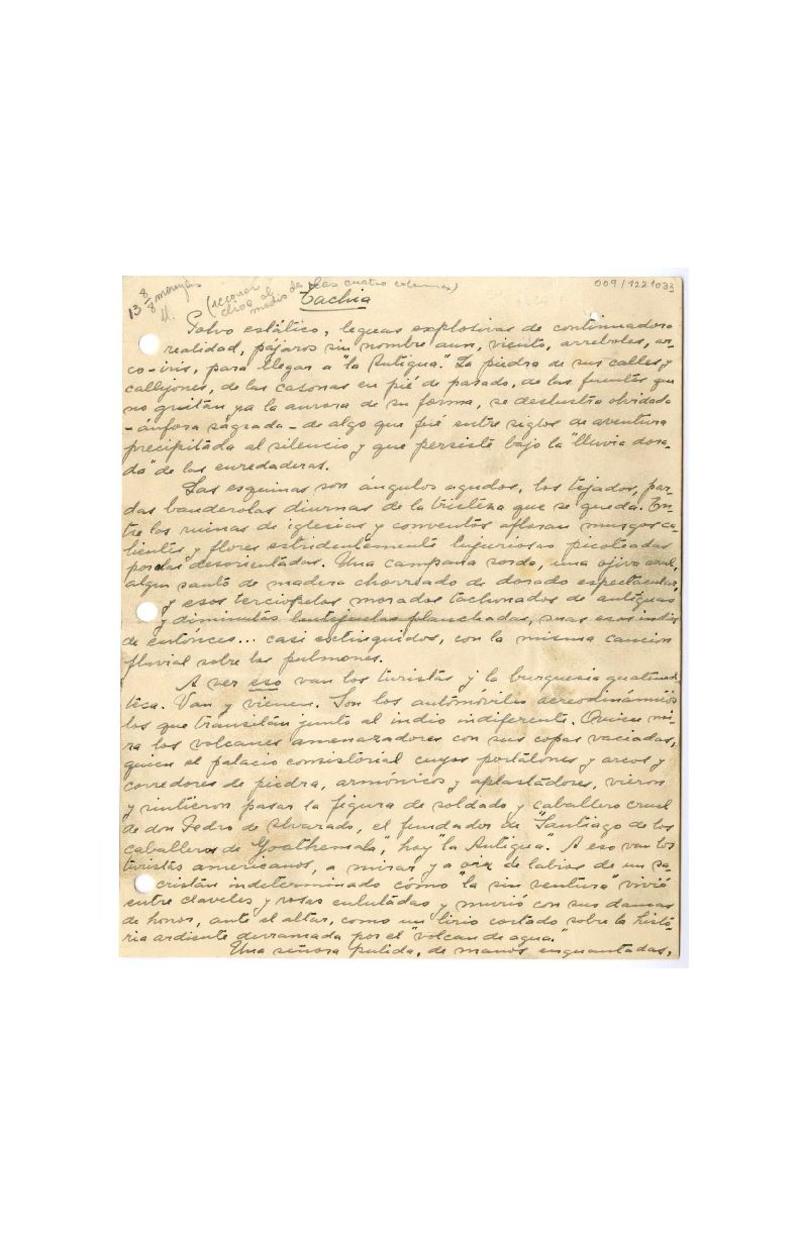 009/1221033
13 8/8 M.
(recuad
clisé al
medio de las cuatro columnas)
Tachia
Polvo estático, leguas explosivas de continuadora
realidad, pájaros sin nombre aun, viento, arreboles, ar-
co-iris, para llegar a "la Antigua." La piedra de sus calles y
callejones, de las casonas en pié de pasado, de las fuentes que
no gritan ya la aurora de su forma, se deslustra olvidada
-ánfora sagrada- de algo que fué entre siglos de aventura
precipitada al silencio y que persiste bajo la "lluvia dora-
da" de las enredaderas.
Las esquinas son ángulos agudos, los tejados, par-
das banderolas diurnas de la tristeza que se queda. En-
tre las ruinas de iglesias y conventos afloran musgos ca-
lientes y flores estridentemente lujuriosas picoteadas
por las desorientadas. Una campana sorda, una ojiva azul,
algun santo de madera chorreado de dorado espectacular,
y esos terciopelos morados tachonados de antiguas
y diminutas lentejuelas planchadas, mas esos indios
de entónces... casi extinguidos, con la misma cancion
fluvial sobre los pulmones.
A ver eso van los turistas y la burguesia guatemal-
teca. Van y vienen. Son los automóviles aereodinámicos
los que transitan junto al indio indiferente. Quien mi-
ra los volcanes amenazadores con sus copas vaciadas,
quien el palacio consistorial cuyos portalones y arcos y
corredores de piedra, armónicos y aplastadores, vieron
y sintieron pasar la figura de soldado y caballero cruel
de don Pedro de Alvarado, el fundador de "Santiago de los
caballeros de Goathemala", hoy "la Antigua. A eso van los
turistas americanos, a mirar y a oir de labios de un sa-
cristán indeterminado cómo "la sin ventura" vivió
entre claveles y rosas enlutadas y murió con sus damas
de honor, ante el altar, como un lirio cortado sobre la histo-
ria ardiente derramada por el "volcan de agua."
Una señora pulida, de manos enguantadas,